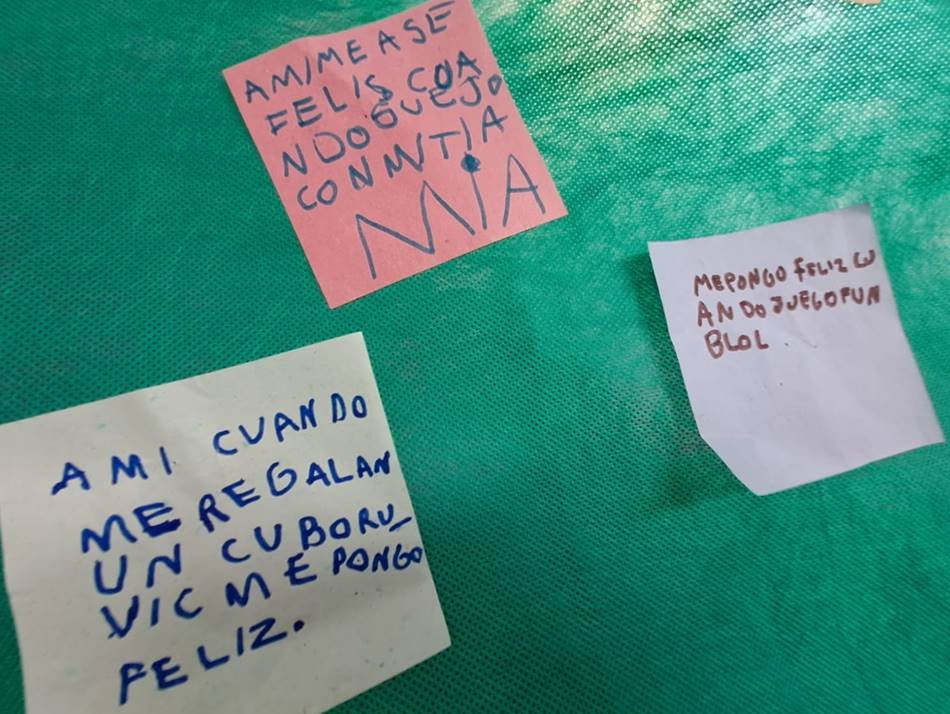 AMIMEASE
FELIS CUA
NDOGUEJO
CONMTIA
MIA
MEPONGO FELIZ CU
ANDOJUEGOFUN
BLOL.
AMI CUANDO
ME REGALAN
UN CUBORU_
VIC ME PONGO
FELIZ.